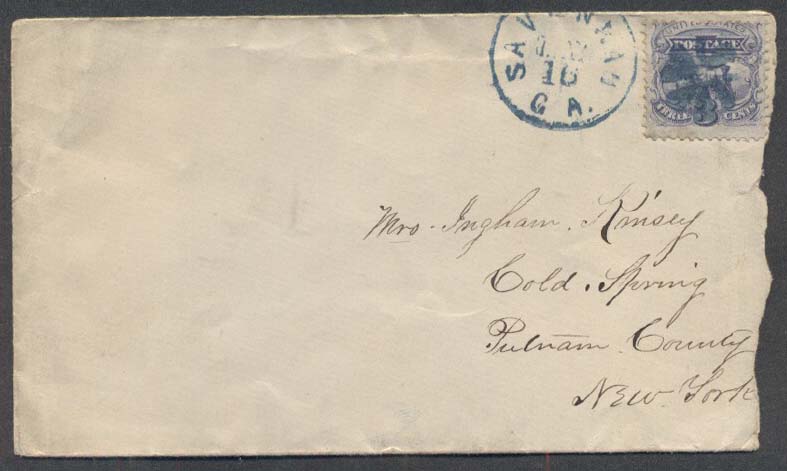 SAVANNAH
16
GA.
UNITED STATES
POSTAGE
THREE 3 CENTS
Mrs. Ingham. Kinsey
Cold. Spring
Putnam. County
New. York